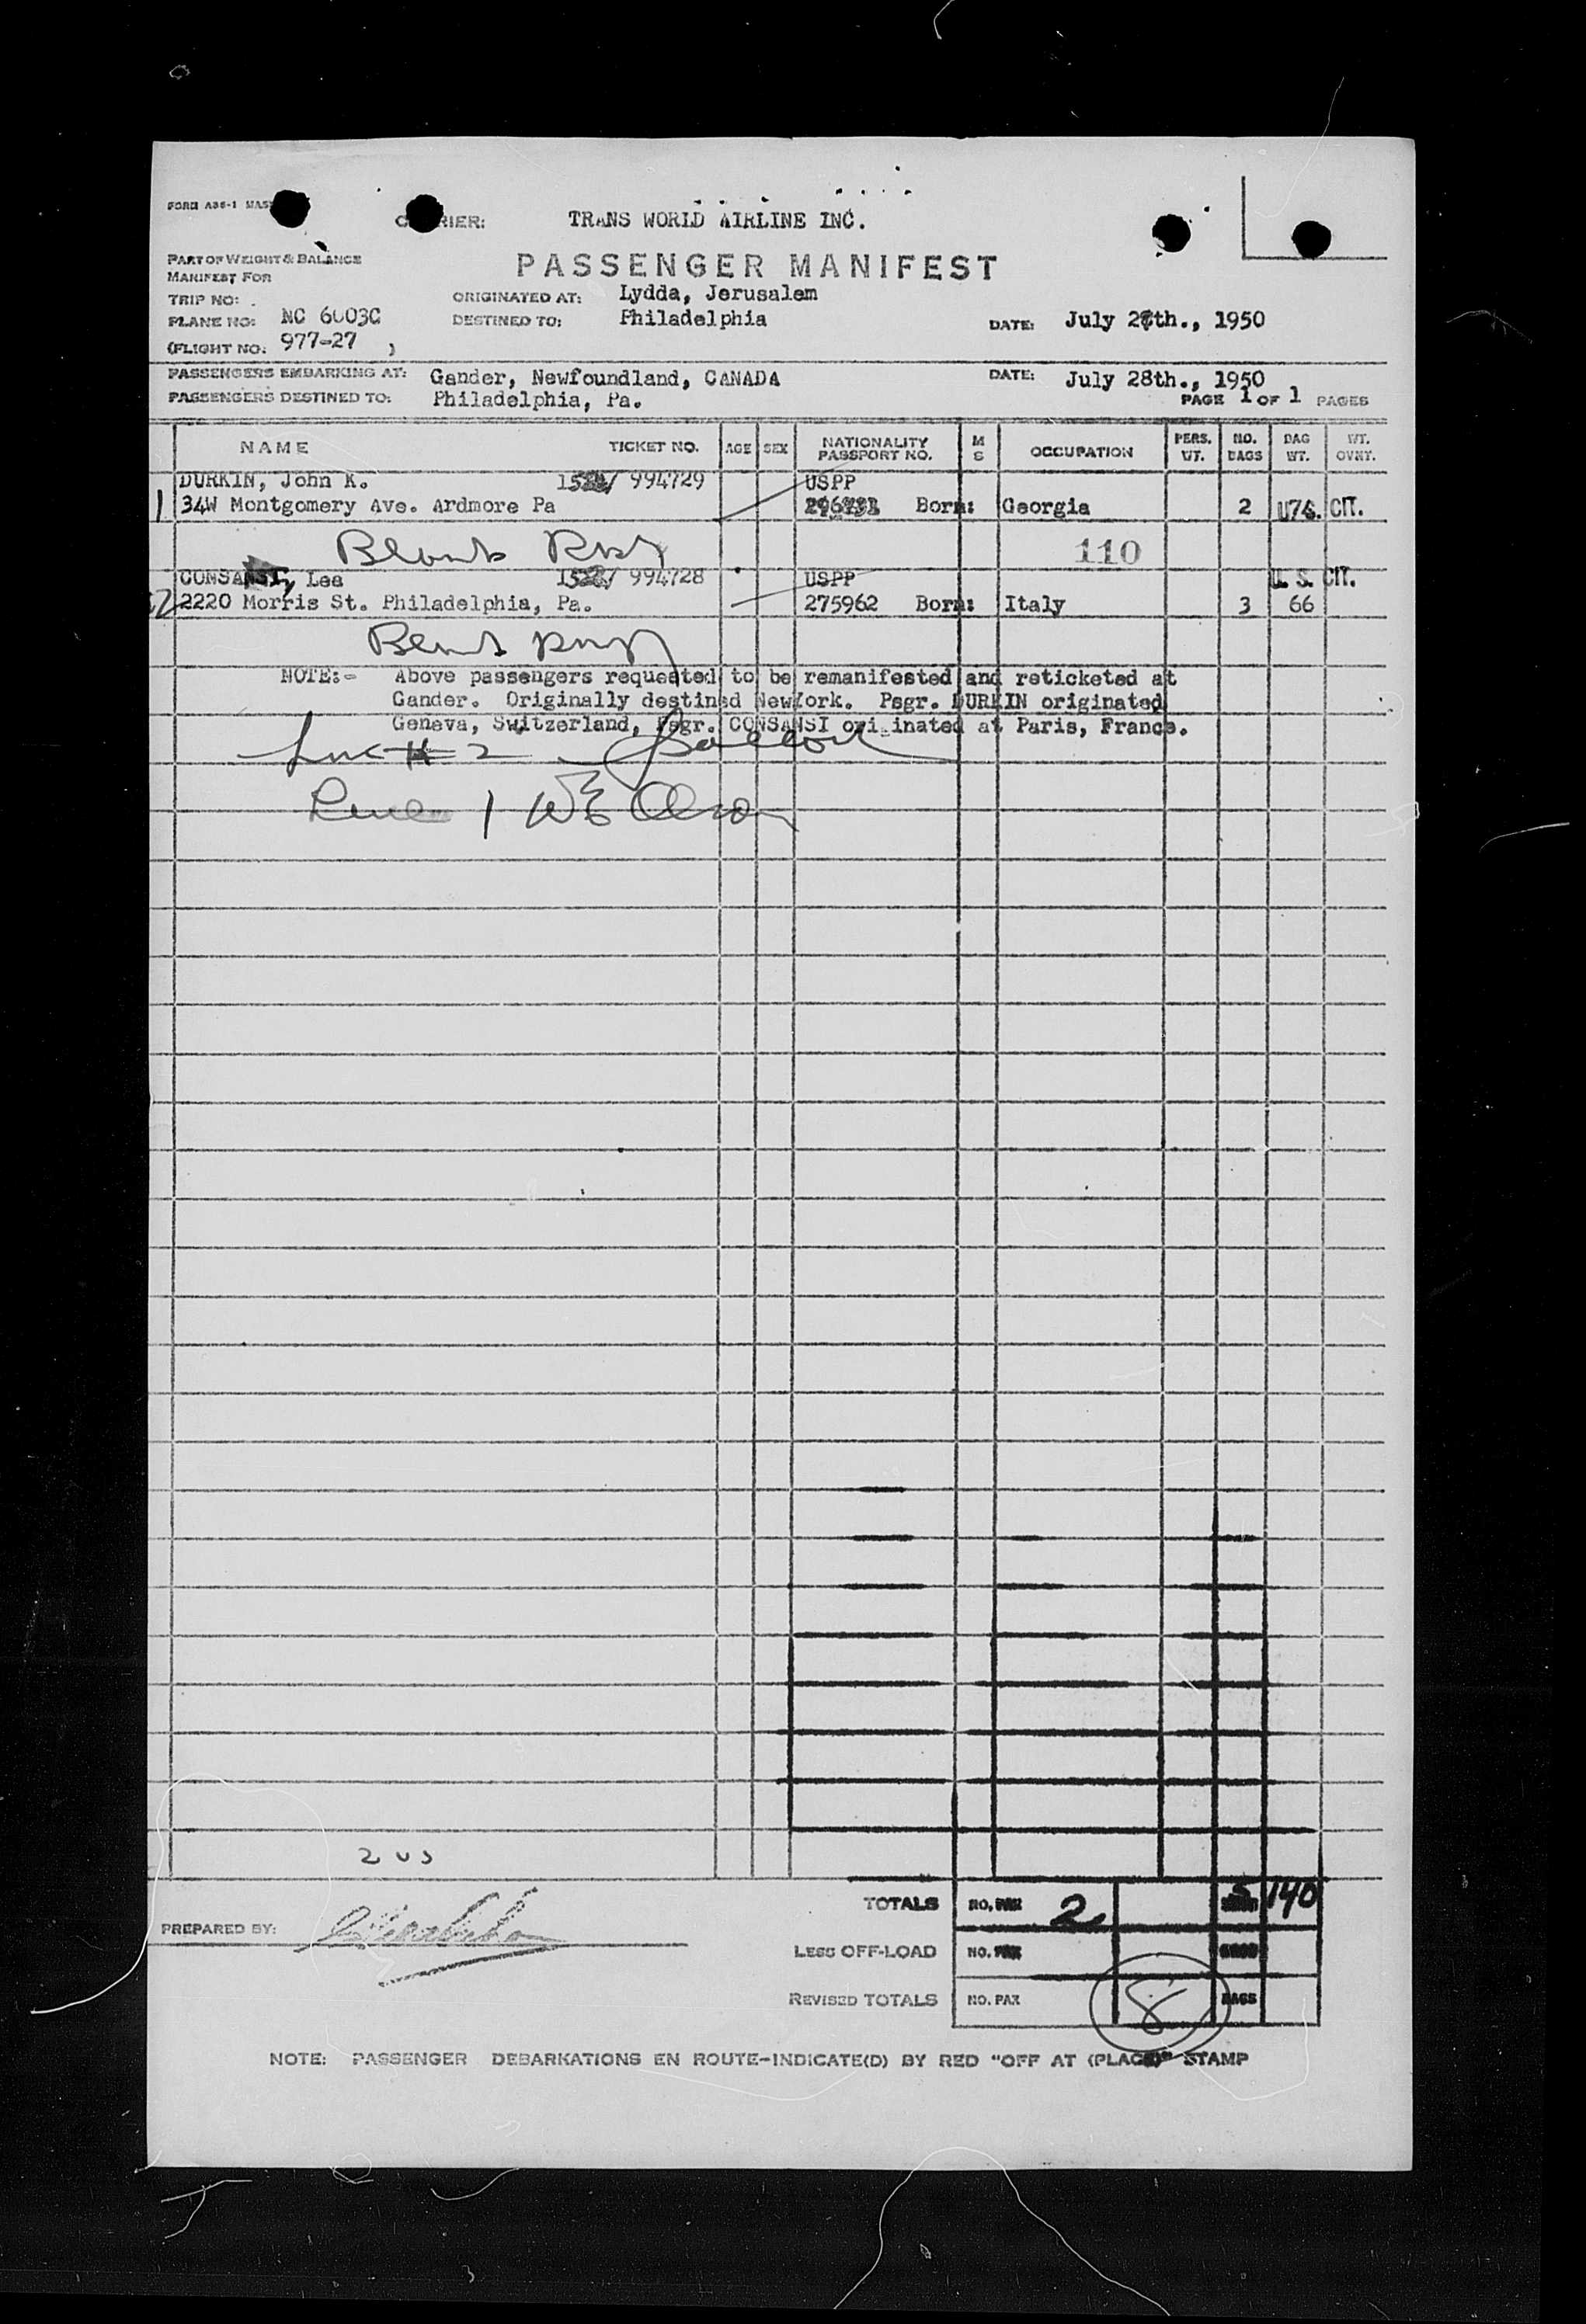 FORM A36-1 MAS
CARRIER: TRANS WORLD AIRLINE INC.
PART OF WEIGHT & BALANCE
MANIFEST FOR
PASSENGER MANIFEST
TRIP NO: ORIGINATED AT: Lydda, Jerusalem
PLANE NO: NC DESTINED TO: Philadelphia DATE: July 1950
(FLIGHT NO: 977-27 )
PASSENGERS EMBARKING AT: Gander, Newfoundland, CANADA DATE: July 28th., 1950
PASSENGERS DESTINED TO: Philadelphia, Pa. PAGE 1 OF 1 PAGES
NAME TICKET NO. AGE SEX NATIONALITY PASSPORT NO. M S OCCUPATION PERS. WT. NO. BAGS BAG WT. WT. OVNT.
DURKIN, John K. 994729 USPP
1 34W Montgomery Ave. Ardmore Pa Born: Georgia 2 CIT.
110
CONSANSI, Lea 994728 USPP U. S. CIT.
2220 Morris St. Philadelphia, Pa. 275962 Born: Italy 3 66
NOTE:- Above passengers requested to be remanifested and reticketed at
Gander. Originally destined NewYork. Psgr. DURKIN originated
Geneva, Switzerland, Psgr. CONSANSI originated at Paris, France.
2 US
TOTALS NO. PAX 2 5 140
PREPARED BY:
LESS OFF-LOAD NO. PAX BAGS
REVISED TOTALS NO. PAX 8 BAGS
NOTE: PASSENGER DEBARKATIONS EN ROUTE-INDICATE(D) BY RED "OFF AT (PLACE)" STAMP